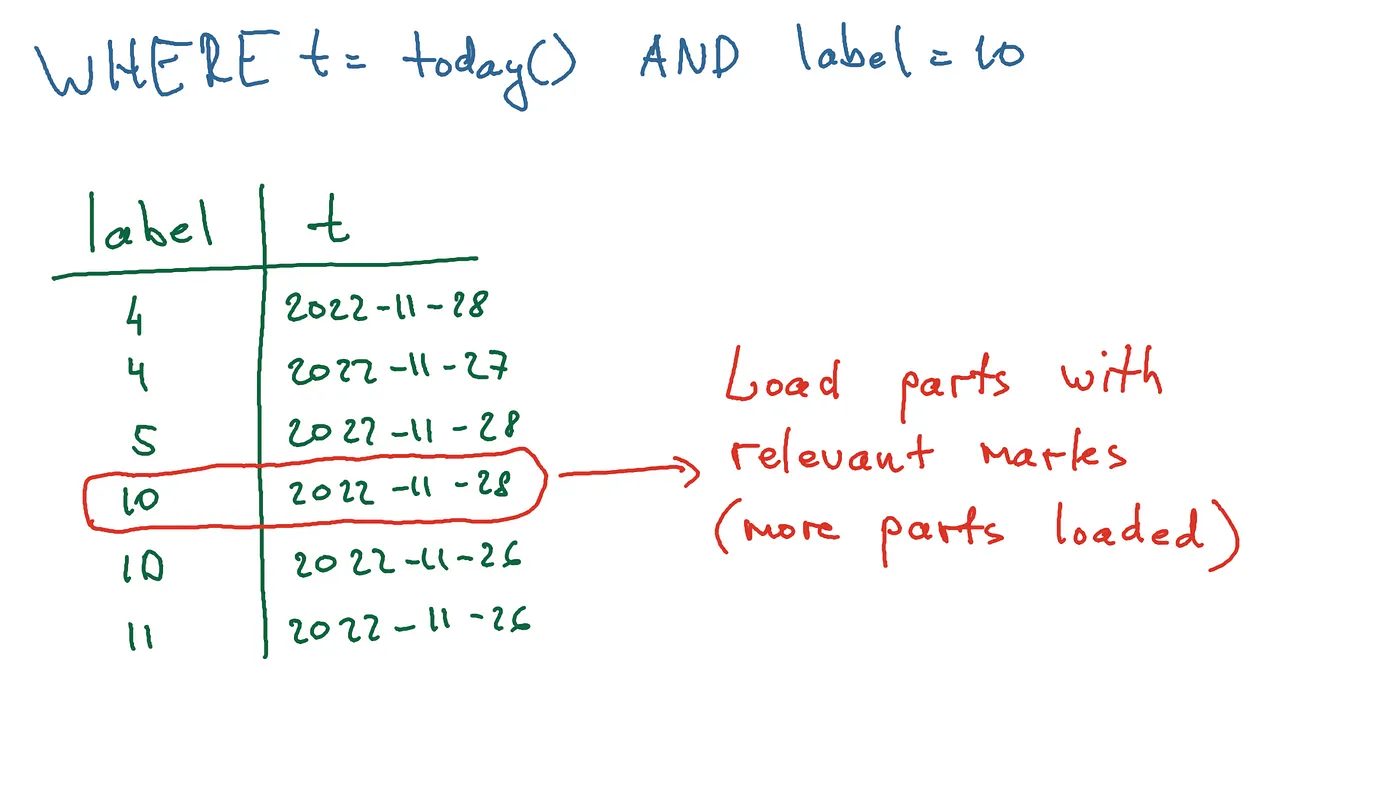 WHERE t = today() AND label = 10
label t
4 2022-11-28
4 2022-11-27
5 2022-11-28
10 2022-11-28
10 2022-11-26
11 2022-11-26
Load parts with
relevant marks
(more parts loaded)